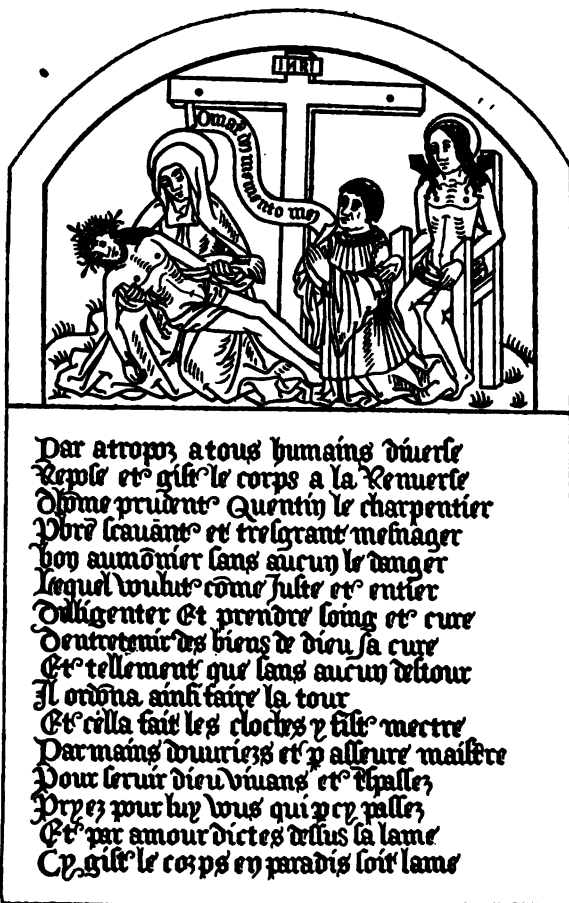 INRI
O mat̄ dei memento mei
Par atropoz a tous humains diverse
Repose et gist le corps a la Renverse
Dhōme prudent Quentin le charpentier
Pbr̄e scavant et tresgrant mesnager
bon aumōnier sans aucun le danger
Lequel voulut cōme Juste et entier
Dilligenter Et prendre soing et cure
Dentretenir des biens de dieu sa cure
Et tellement que sans aucun destour
Il ordōna ainsi faire la tour
Et cella fait les cloches y fist mectre
Par mains douvriers et p asseure maistre
Pour servir dieu vivans et t̄spassez
Pryez pour luy vous qui p cy passez
Et par amour dictes dessus sa lame
Cy gist le corps en paradis soit lame